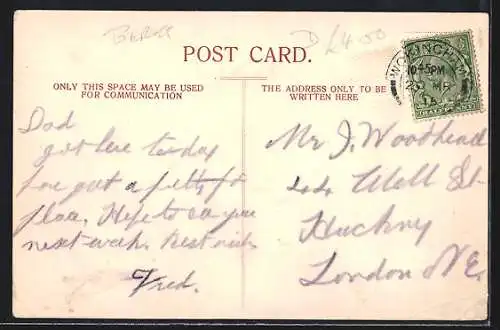 BERK
D £4.00
POST CARD.
ONLY THIS SPACE MAY BE USED
FOR COMMUNICATION
THE ADDRESS ONLY TO BE
WRITTEN HERE
WOKINGHAM
10 45PM
MR
14
HALFPENNY
Dad
got here to day
have got a
place. Hope to see you
next week. Best wishes
Fred.
Mr J. Woodhead
44 Well St
Hackney
London N.E.